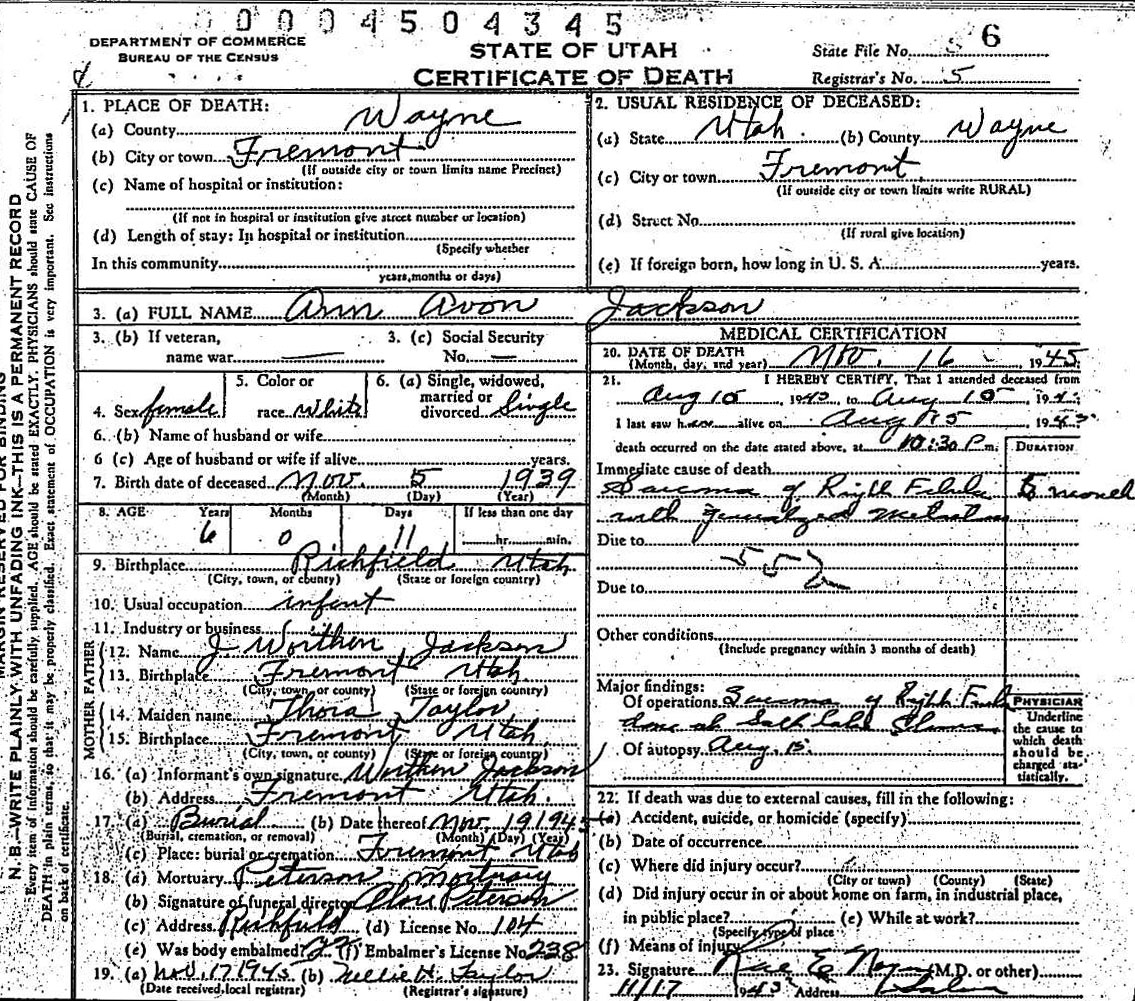 00004504345
DEPARTMENT OF COMMERCE
BUREAU OF THE CENSUS
STATE OF UTAH
CERTIFICATE OF DEATH
State File No. 6
Registrar's No. 5
MARGIN RESERVED FOR BINDING
N. B.—WRITE PLAINLY, WITH UNFADING INK—THIS IS A PERMANENT RECORD
Every item of information should be carefully supplied. AGE should be stated EXACTLY. PHYSICIANS should state CAUSE OF
DEATH in plain terms, so that it may be properly classified. Exact statement of OCCUPATION is very important. See instructions
on back of certificate.
1. PLACE OF DEATH:
(a) County Wayne
(b) City or town Fremont
(If outside city or town limits name Precinct)
(c) Name of hospital or institution:
(If not in hospital or institution give street number or location)
(d) Length of stay: In hospital or institution
(Specify whether
In this community
years, months or days)
2. USUAL RESIDENCE OF DECEASED:
(a) State Utah (b) County Wayne
(c) City or town Fremont
(If outside city or town limits write RURAL)
(d) Street No.
(If rural give location)
(e) If foreign born, how long in U. S. A. years.
3. (a) FULL NAME Ann Avon Jackson
3. (b) If veteran, name war —
3. (c) Social Security No. —
4. Sex female
5. Color or race White
6. (a) Single, widowed, married or divorced Single
6. (b) Name of husband or wife
6 (c) Age of husband or wife if alive years.
7. Birth date of deceased Nov. 5 1939
(Month) (Day) (Year)
8. AGE Years Months Days If less than one day
6 0 11 hr. min.
9. Birthplace Richfield Utah
(City, town, or county) (State or foreign country)
10. Usual occupation infant
11. Industry or business
FATHER
12. Name J. Worthen Jackson
13. Birthplace Fremont Utah
(City, town, or county) (State or foreign country)
MOTHER
14. Maiden name Thora Taylor
15. Birthplace Fremont Utah
(City, town, or county) (State or foreign country)
16. (a) Informant's own signature Worthen Jackson
(b) Address Fremont Utah.
17. (a) Burial (b) Date thereof Nov. 19 1945
(Burial, cremation, or removal) (Month) (Day) (Year)
(c) Place: burial or cremation Fremont Utah
18. (a) Mortuary Peterson Mortuary
(b) Signature of funeral director Peterson
(c) Address Richfield (d) License No. 104
(e) Was body embalmed? (f) Embalmer's License No. 238
19. (a) Nov. 17 1945 (b) Nellie H. Taylor
(Date received local registrar) (Registrar's signature)
MEDICAL CERTIFICATION
20. DATE OF DEATH
(Month, day, and year) Nov. 16 1945
21. I HEREBY CERTIFY, That I attended deceased from
Aug 15 1945 to Aug 15 194
I last saw h alive on Aug 15 1945
death occurred on the date stated above, at 10:30 P m.
DURATION
Immediate cause of death
Sarcoma of Right Fibula
with generalized
Due to
552
Due to
Other conditions
(Include pregnancy within 3 months of death)
Major findings:
Of operations Sarcoma of Right
done at Salt Lake
Of autopsy Aug. 15
PHYSICIAN
Underline
the cause to
which death
should be
charged sta-
tistically.
22. If death was due to external causes, fill in the following:
(a) Accident, suicide, or homicide (specify)
(b) Date of occurrence
(c) Where did injury occur?
(City or town) (County) (State)
(d) Did injury occur in or about home on farm, in industrial place,
in public place? (e) While at work?
(Specify type of place
(f) Means of injury
23. Signature Rae E (M.D. or other)
11/17 1945 Address